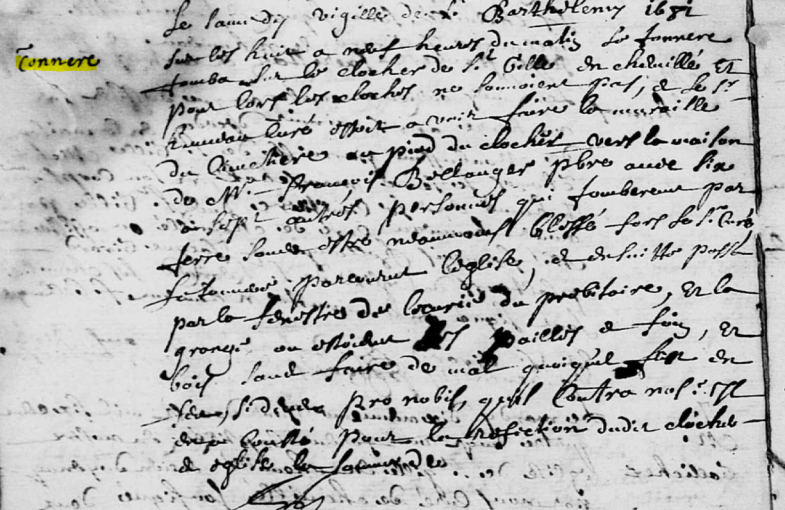 Le samedy vigille de St Barthelemy 1651
tonnere
sur les huit a neuf heures du matin Le tonnere
tomba sur le clocher de St Gille en chenillé et
pour lors les cloches ne sonnoient pas, et le Sr
curé estoit a voir faire la muraille
du cimetiere au pied du clocher vers la maison
de Mre François Bellanger pbre avec six
ou sept autres personnes qui tomberent par
terre sans estre neanmoins blessé fors le Sr Curé
le tonnere parcourut l'eglise, et ensuitte passa
par la fenestre de l'ecurie du presbitoire, et la
grange ou estoient les pailles et foin, et
bois sans faire de mal quoique fut en
feu, si deus pro nobis, quis contra nos. Il
en a cousté pour la refection dudit clocher
et eglise la somme de